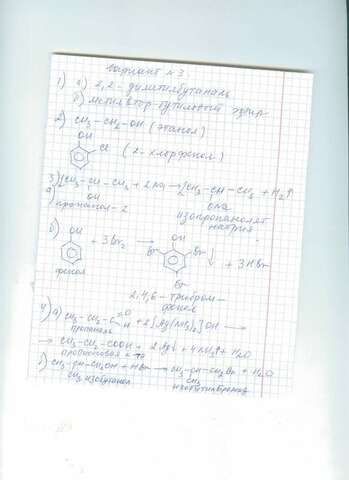 Вариант №3
1) а) 2,2-диметилбутаналь
б) метилвтор-бутиловый эфир
2) CH3-CH2-OH (этанол)
OH
Cl (2-хлорфенол)
3) 2CH3-CH-CH3 + 2Na → 2CH3-CH-CH3 + H2↑
а) OH ONa
пропанол-2 изопропанолят
натрия
б) OH OH
+ 3Br2 → Br Br ↓ + 3HBr
фенол Br
2,4,6-трибром-
фенол
4) а) CH3-CH2-C=O H + 2[Ag(NH3)2]OH →
пропаналь
→ CH3-CH2-COOH + 2Ag↓ + 4NH3↑ + H2O
пропионовая к-та
б) CH3-CH-CH2OH + HBr → CH3-CH-CH2Br + H2O
CH3 изобутанол CH3
изобутилбромид